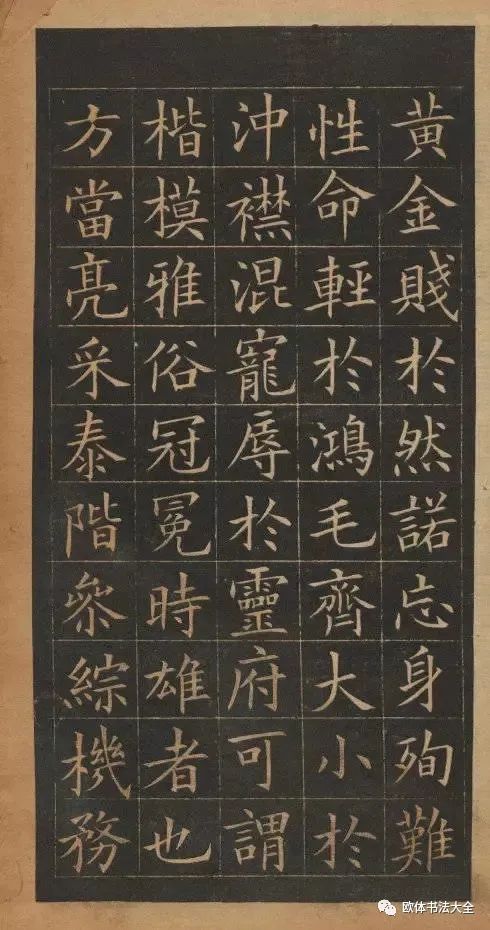 黄金賤於然諾忘身殉難
性命輕於鴻毛齊大小於
沖襟混寵辱於靈府可謂
楷模雅俗冠冕時雄者也
方當亮采泰階參綜機務
欧体书法大全